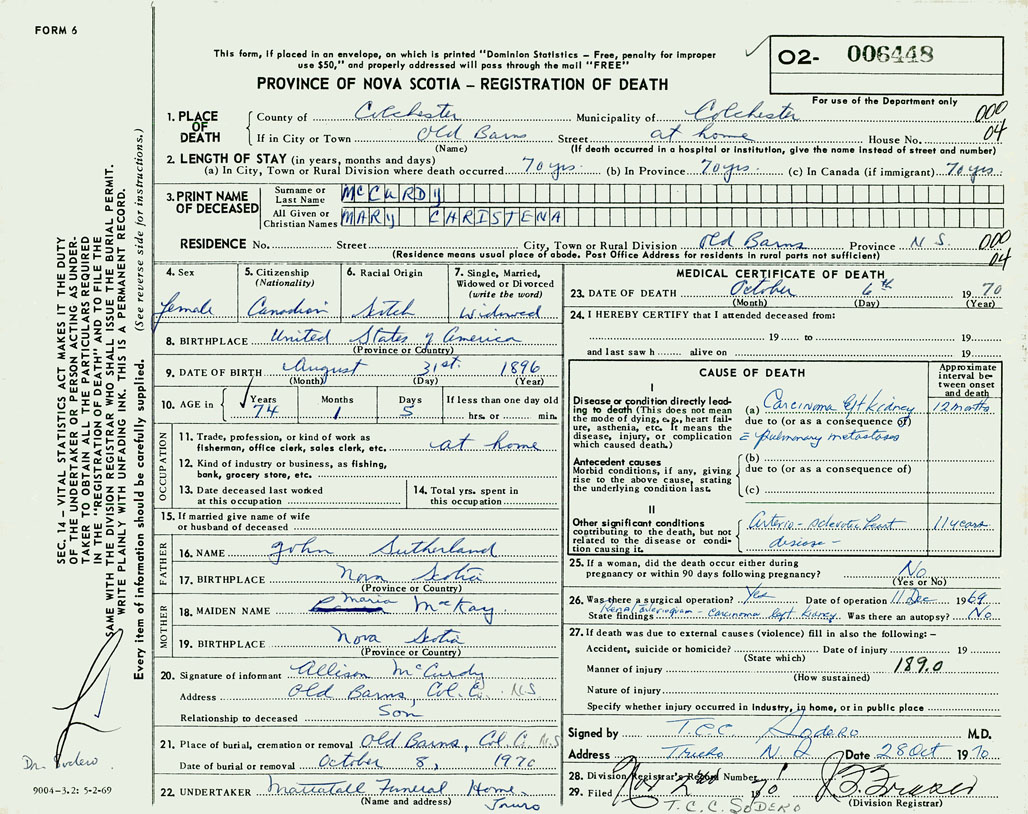 FORM 6
This form, if placed in an envelope, on which is printed "Dominion Statistics – Free, penalty for improper
use $50," and properly addressed will pass through the mail "FREE"
O2- 006448
PROVINCE OF NOVA SCOTIA – REGISTRATION OF DEATH
For use of the Department only
1. PLACE OF DEATH
County of Colchester Municipality of Colchester 000
If in City or Town Old Barns Street at home House No. 04
(Name) (If death occurred in a hospital or institution, give the name instead of street and number)
2. LENGTH OF STAY (in years, months and days)
(a) In City, Town or Rural Division where death occurred 70 yrs. (b) In Province 70 yrs. (c) In Canada (if immigrant) 70 yrs.
3. PRINT NAME OF DECEASED
Surname or Last Name McCURDY
All Given or Christian Names MARY CHRISTENA
RESIDENCE No. Street City, Town or Rural Division Old Barns Province N S. 000
(Residence means usual place of abode. Post Office Address for residents in rural parts not sufficient) 04
4. Sex
female
5. Citizenship
(Nationality)
Canadian
6. Racial Origin
Sctch
7. Single, Married,
Widowed or Divorced
(write the word)
Widowed
8. BIRTHPLACE United States of America
(Province or Country)
9. DATE OF BIRTH August 31st. 1896
(Month) (Day) (Year)
10. AGE in Years Months Days If less than one day old
74 1 5 hrs. or min.
OCCUPATION
11. Trade, profession, or kind of work as
fisherman, office clerk, sales clerk, etc. at home
12. Kind of industry or business, as fishing,
bank, grocery store, etc.
13. Date deceased last worked
at this occupation
14. Total yrs. spent in
this occupation
15. If married give name of wife
or husband of deceased
FATHER
16. NAME John Sutherland
17. BIRTHPLACE Nova Scotia
(Province or Country)
MOTHER
18. MAIDEN NAME Maria McKay
19. BIRTHPLACE Nova Scotia
(Province or Country)
20. Signature of informant Allison McCurdy
Address Old Barns, Col. Co. NS
Relationship to deceased Son
21. Place of burial, cremation or removal Old Barns, Col. C. N.S
Date of burial or removal October 8, 1970
22. UNDERTAKER Mattatall Funeral Home -
(Name and address) Truro
MEDICAL CERTIFICATE OF DEATH
23. DATE OF DEATH October 6th 1970
(Month) (Day) (Year)
24. I HEREBY CERTIFY that I attended deceased from:
19 to 19
and last saw h alive on 19
CAUSE OF DEATH
Approximate interval between onset and death
I
Disease or condition directly leading to death (This does not mean the mode of dying, e.g., heart failure, asthenia, etc. It means the disease, injury, or complication which caused death.)
(a) Carcinoma left kidney 12 months
due to (or as a consequence of)
c̄ pulmonary metastases
Antecedent causes
Morbid conditions, if any, giving rise to the above cause, stating the underlying condition last.
(b)
due to (or as a consequence of)
(c)
II
Other significant conditions
contributing to the death, but not related to the disease or condition causing it.
Arterio-sclerotic heart disease - 11 years
25. If a woman, did the death occur either during
pregnancy or within 90 days following pregnancy? No
(Yes or No)
26. Was there a surgical operation? Yes Date of operation 11 Dec 1969
State findings Renal - carcinoma left kidney. Was there an autopsy? No
27. If death was due to external causes (violence) fill in also the following: –
Accident, suicide or homicide? Date of injury 19
(State which)
Manner of injury 189.0
(How sustained)
Nature of injury
Specify whether injury occurred in industry, in home, or in public place
Signed by T.C.C. Sodero M.D.
Address Truro N.S Date 28 Oct 1970
28. Division Registrar's Record Number
29. Filed Nov 2nd 1970
(Division Registrar)
T.C.C. SODERO
SEC. 14 – VITAL STATISTICS ACT MAKES IT THE DUTY
OF THE UNDERTAKER OR PERSON ACTING AS UNDERTAKER TO OBTAIN ALL THE PARTICULARS REQUIRED
IN THE "REGISTRATION OF DEATH" AND TO FILE THE
SAME WITH THE DIVISION REGISTRAR WHO SHALL ISSUE THE BURIAL PERMIT.
WRITE PLAINLY WITH UNFADING INK. THIS IS A PERMANENT RECORD.
Every item of information should be carefully supplied. (See reverse side for instructions.)
Dr. Sodero.
9004-3.2: 5-2-69